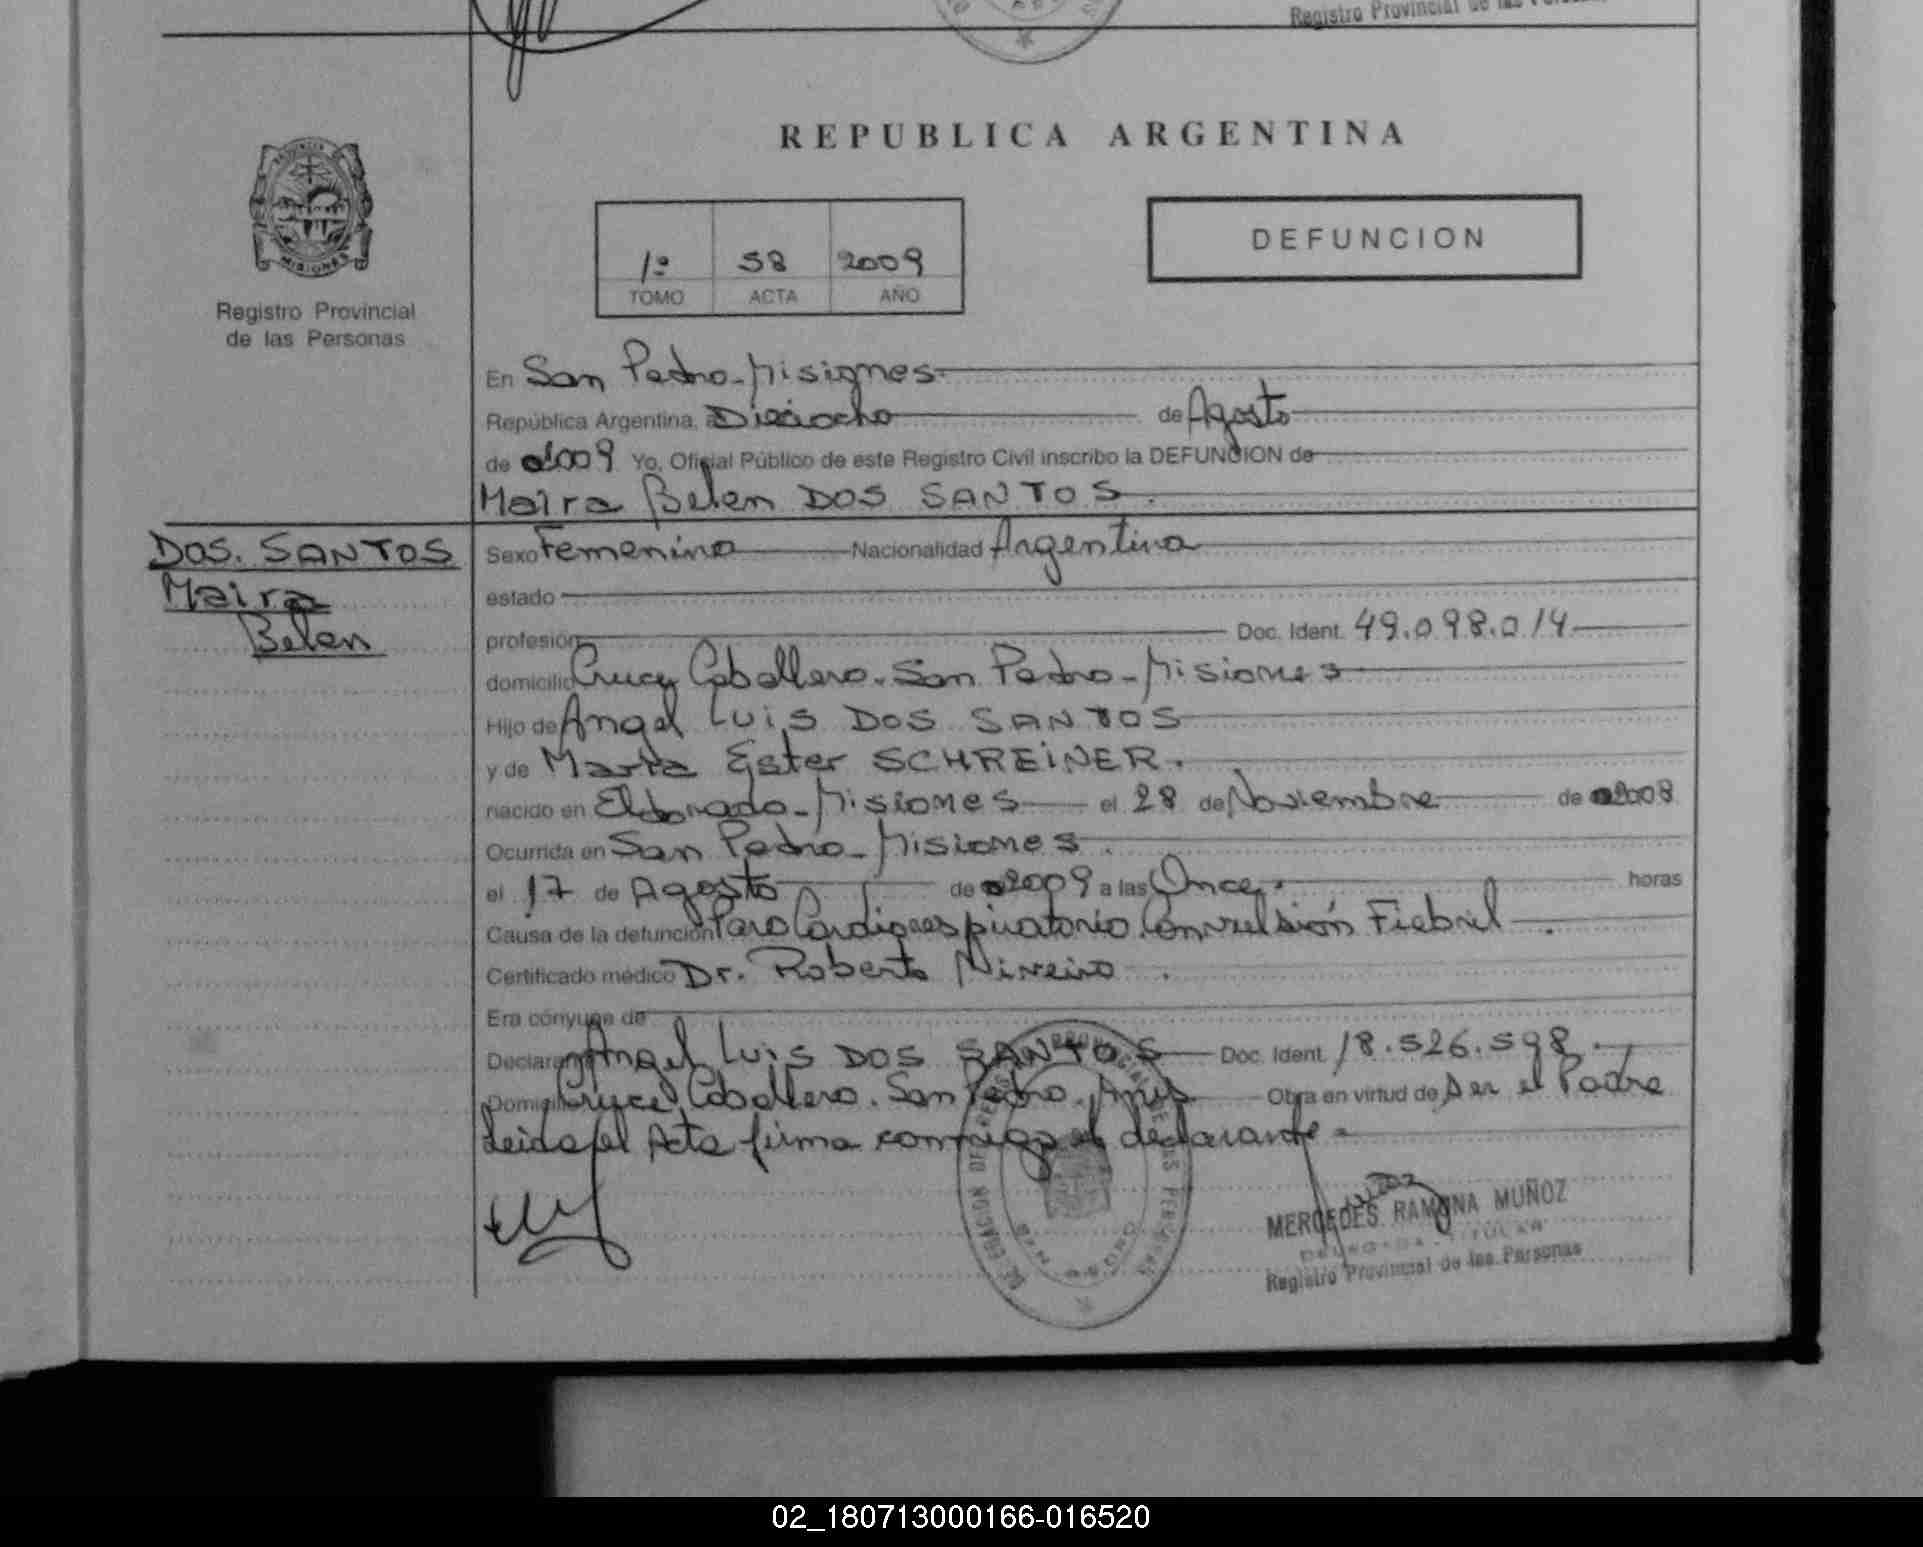 Registro Provincial de las Personas
REPUBLICA ARGENTINA
1º 58 2009
TOMO ACTA AÑO
DEFUNCION
PROVINCIA
MISIONES
Registro Provincial
de las Personas
En San Pedro - Misiones
República Argentina, a Dieciocho de Agosto
de 2009 Yo, Oficial Público de este Registro Civil inscribo la DEFUNCION de
Maira Belen DOS SANTOS.
DOS. SANTOS
Maira
Belen
Sexo Femenino Nacionalidad Argentina
estado
profesión Doc. Ident. 49.098.014
domicilio Cruce Caballero. San Pedro - Misiones
Hijo de Angel Luis DOS SANTOS
y de Maria Ester SCHREINER.
nacido en Eldorado - Misiones el 28 de Noviembre de 2008
Ocurrida en San Pedro - Misiones.
el 17 de Agosto de 2009 a las Once. horas
Causa de la defunción Paro Cardiorespiratorio. Convulsión Fiebril.
Certificado médico Dr. Roberto
Era cónyuge de
Declarante Angel Luis DOS SANTOS Doc. Ident. 18.526.598.
Domicilio Cruce Caballero. San Pedro. Mnes Obra en virtud de Ser el Padre
Leida el Acta firma conmigo el declarante.
MERCEDES RAMONA MUÑOZ
DELEGADA TITULAR
Registro Provincial de las Personas
02_180713000166-016520